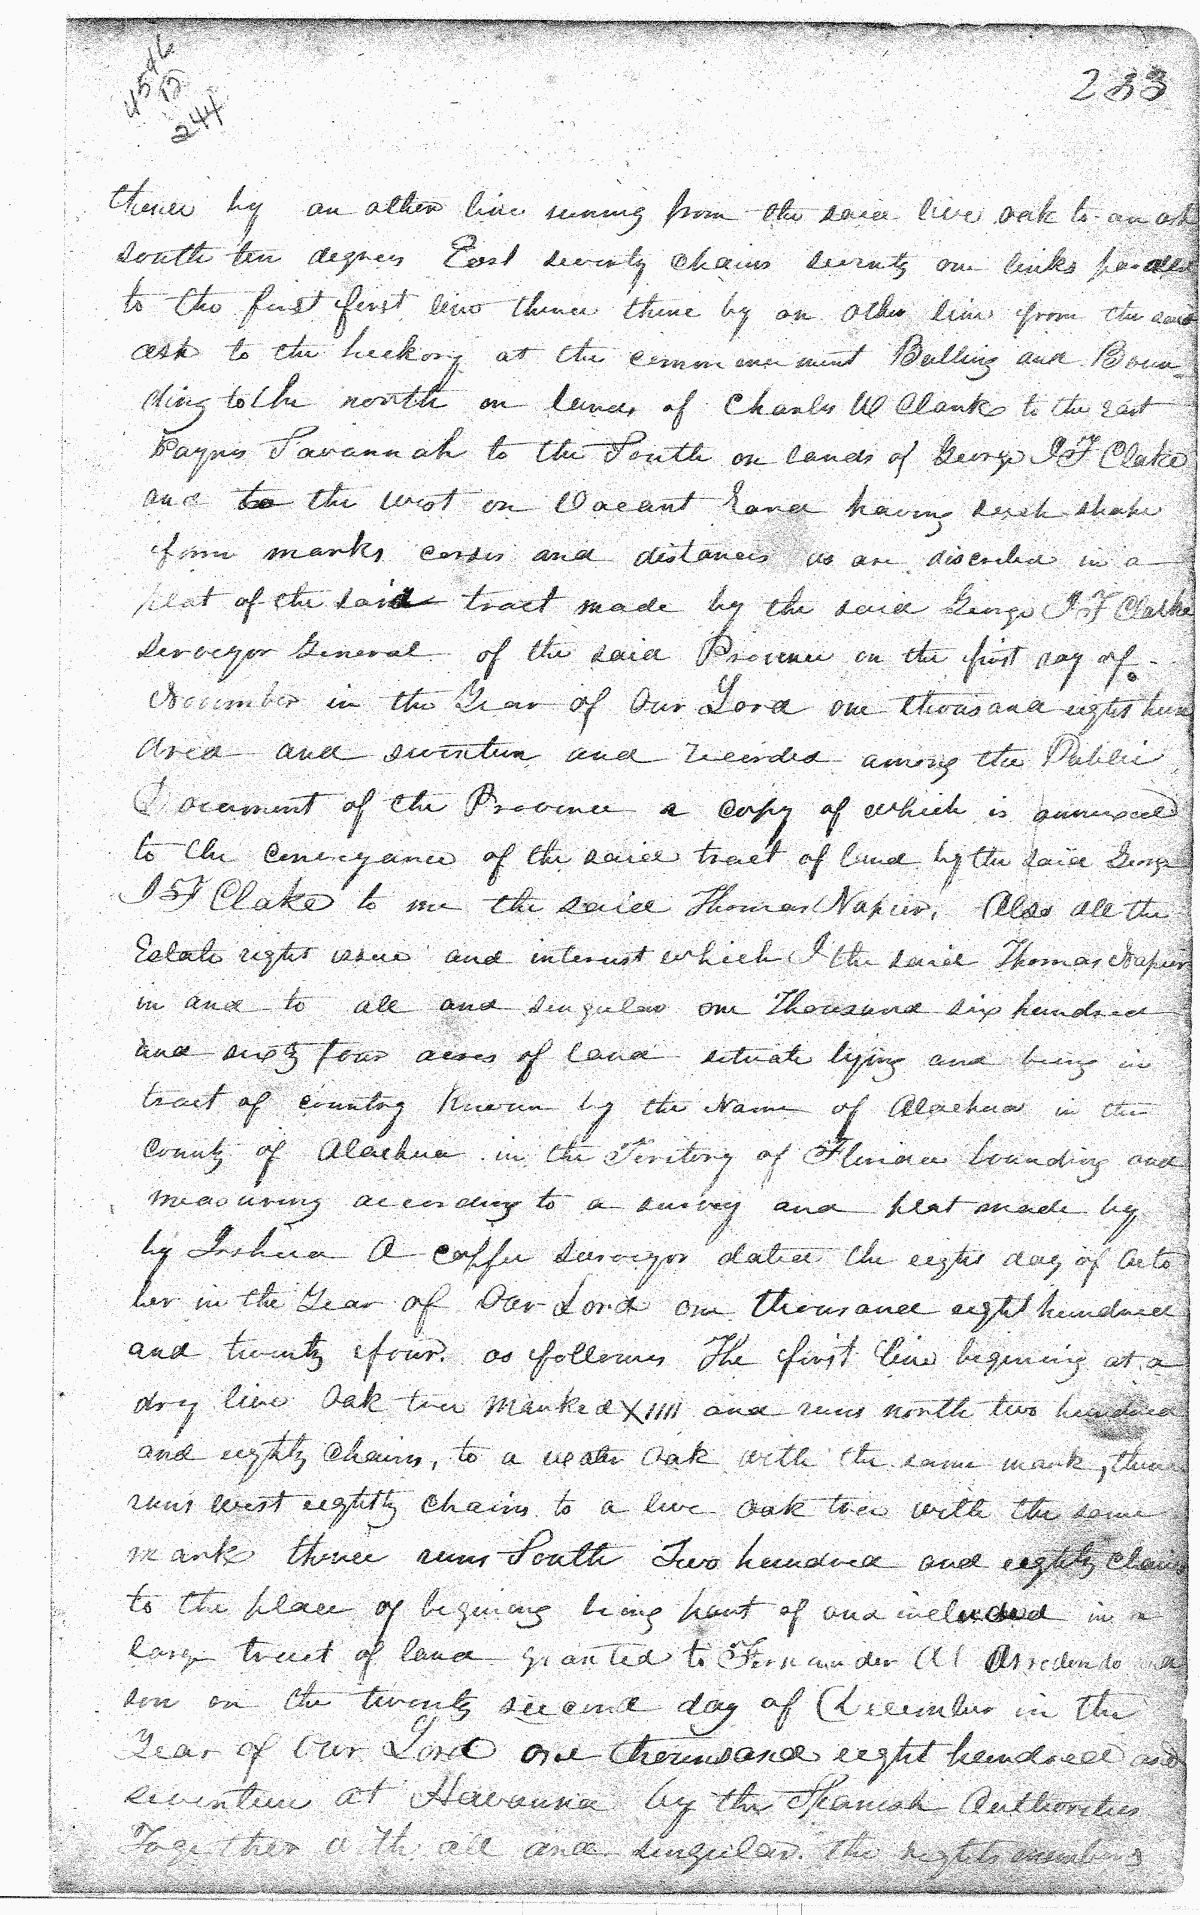 4546
12
244
233
thence by an other line runing from the said live oak to an ash
south ten degrees East seventy chains seventy one links paralel
to the first first line thence thence by an other line from the said
ash to the heckory at the commencement Butting and Boun-
ding to the north on lands of Charles W Clarke to the East
Paynes Savannah to the South on lands of George I F Clake
and to the west on Vacant Land having such shake
form marks corses and distances as are discribed in a
plat of the said tract made by the said George I F Clarke
Surveyor General of the said Province on the first day of
November in the Year of Our Lord one thousand eight hun
dred and seventeen and recorded among the Public
Document of the Province a copy of which is annexed
to the conveyance of the said tract of land by the said George
I F Clake to me the said Thomas Napier. Also all the
Estate right issue and interest which I the said Thomas Napier
in and to all and singular one Thousand six hundred
and sixty four acres of land situate lying and being in
tract of country known by the Name of Alachua in the
County of Alachua in the Teritory of Florida bounding and
measuring according to a survey and plat made by
by Joshua A coffee Surveyor dated the eight day of Octo
ber in the Year of Our Lord one thousand eight hundred
and twenty four. as follows The first line begining at a
dry live Oak tree Marked XIIII and runs north two hundred
and eighty Chains, to a water Oak with the same mark, thence
runs west eightty chains to a live oak tree with the same
mark thence runs South Two hundred and eighty Chains
to the place of begining being part of and included in a
large tract of land granted to Fernander M Arredondo and
son on the twenty second day of December in the
Year of Our Lord one thousand eight hundred and
seventeen at Havanna by the Spanish Authorities
Together with all and singular. the rights members